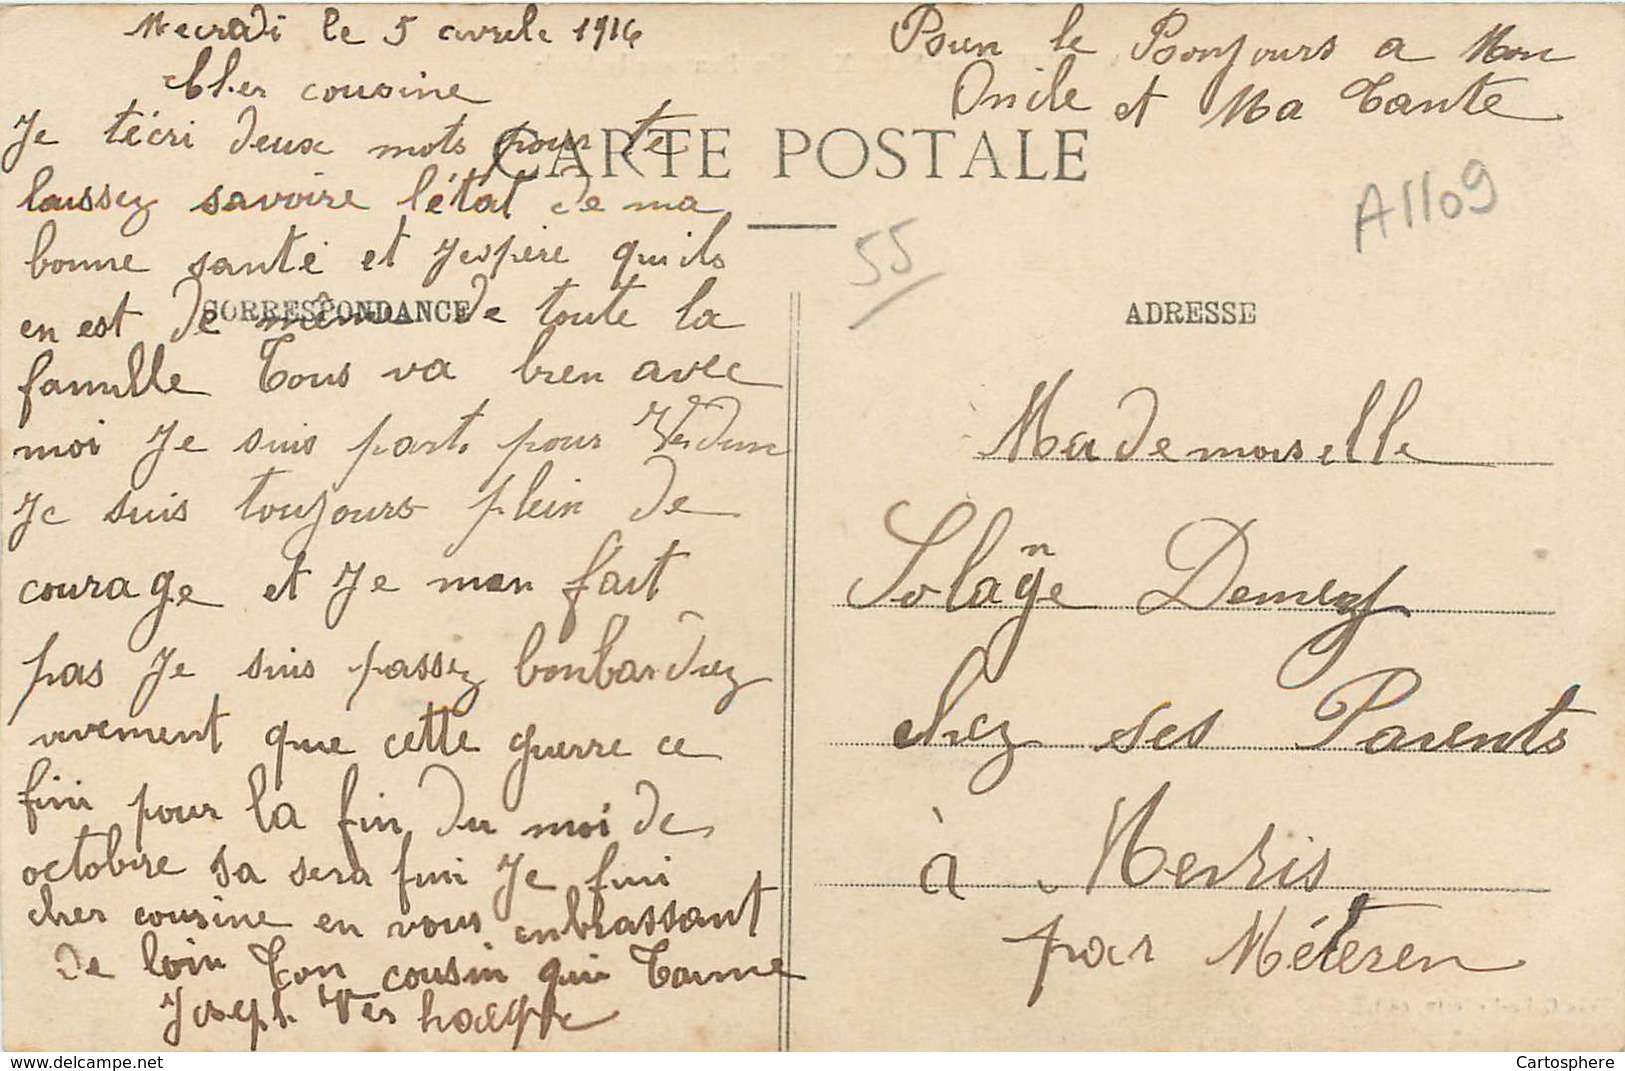 Mecradi le 5 avrile 1916
Cher cousine
Je técri deux mots pour te
laissez savoire l'état de ma
bonne santé et J'espère quils
en est de même de toute la
famille Tous va bien avec
moi Je suis parti pour Verdun
Je suis toujours plein de
courage et Je men fait
pas Je suis passez bonbardiez
vivement que cette guerre ce
fini pour la fin du moi de
octobre sa sera fini Je fini
cher cousine en vous enbrassant
de loin Ton cousin qui T'aime
Joseph Verhaeghe
Bien le Bonjours a Mon
Oncle et Ma Tante
CARTE POSTALE
A1109
55
CORRESPONDANCE
ADRESSE
Mademoiselle
Solange Demey
chez ses Parents
à Merris
par Méteren
Cartosphere